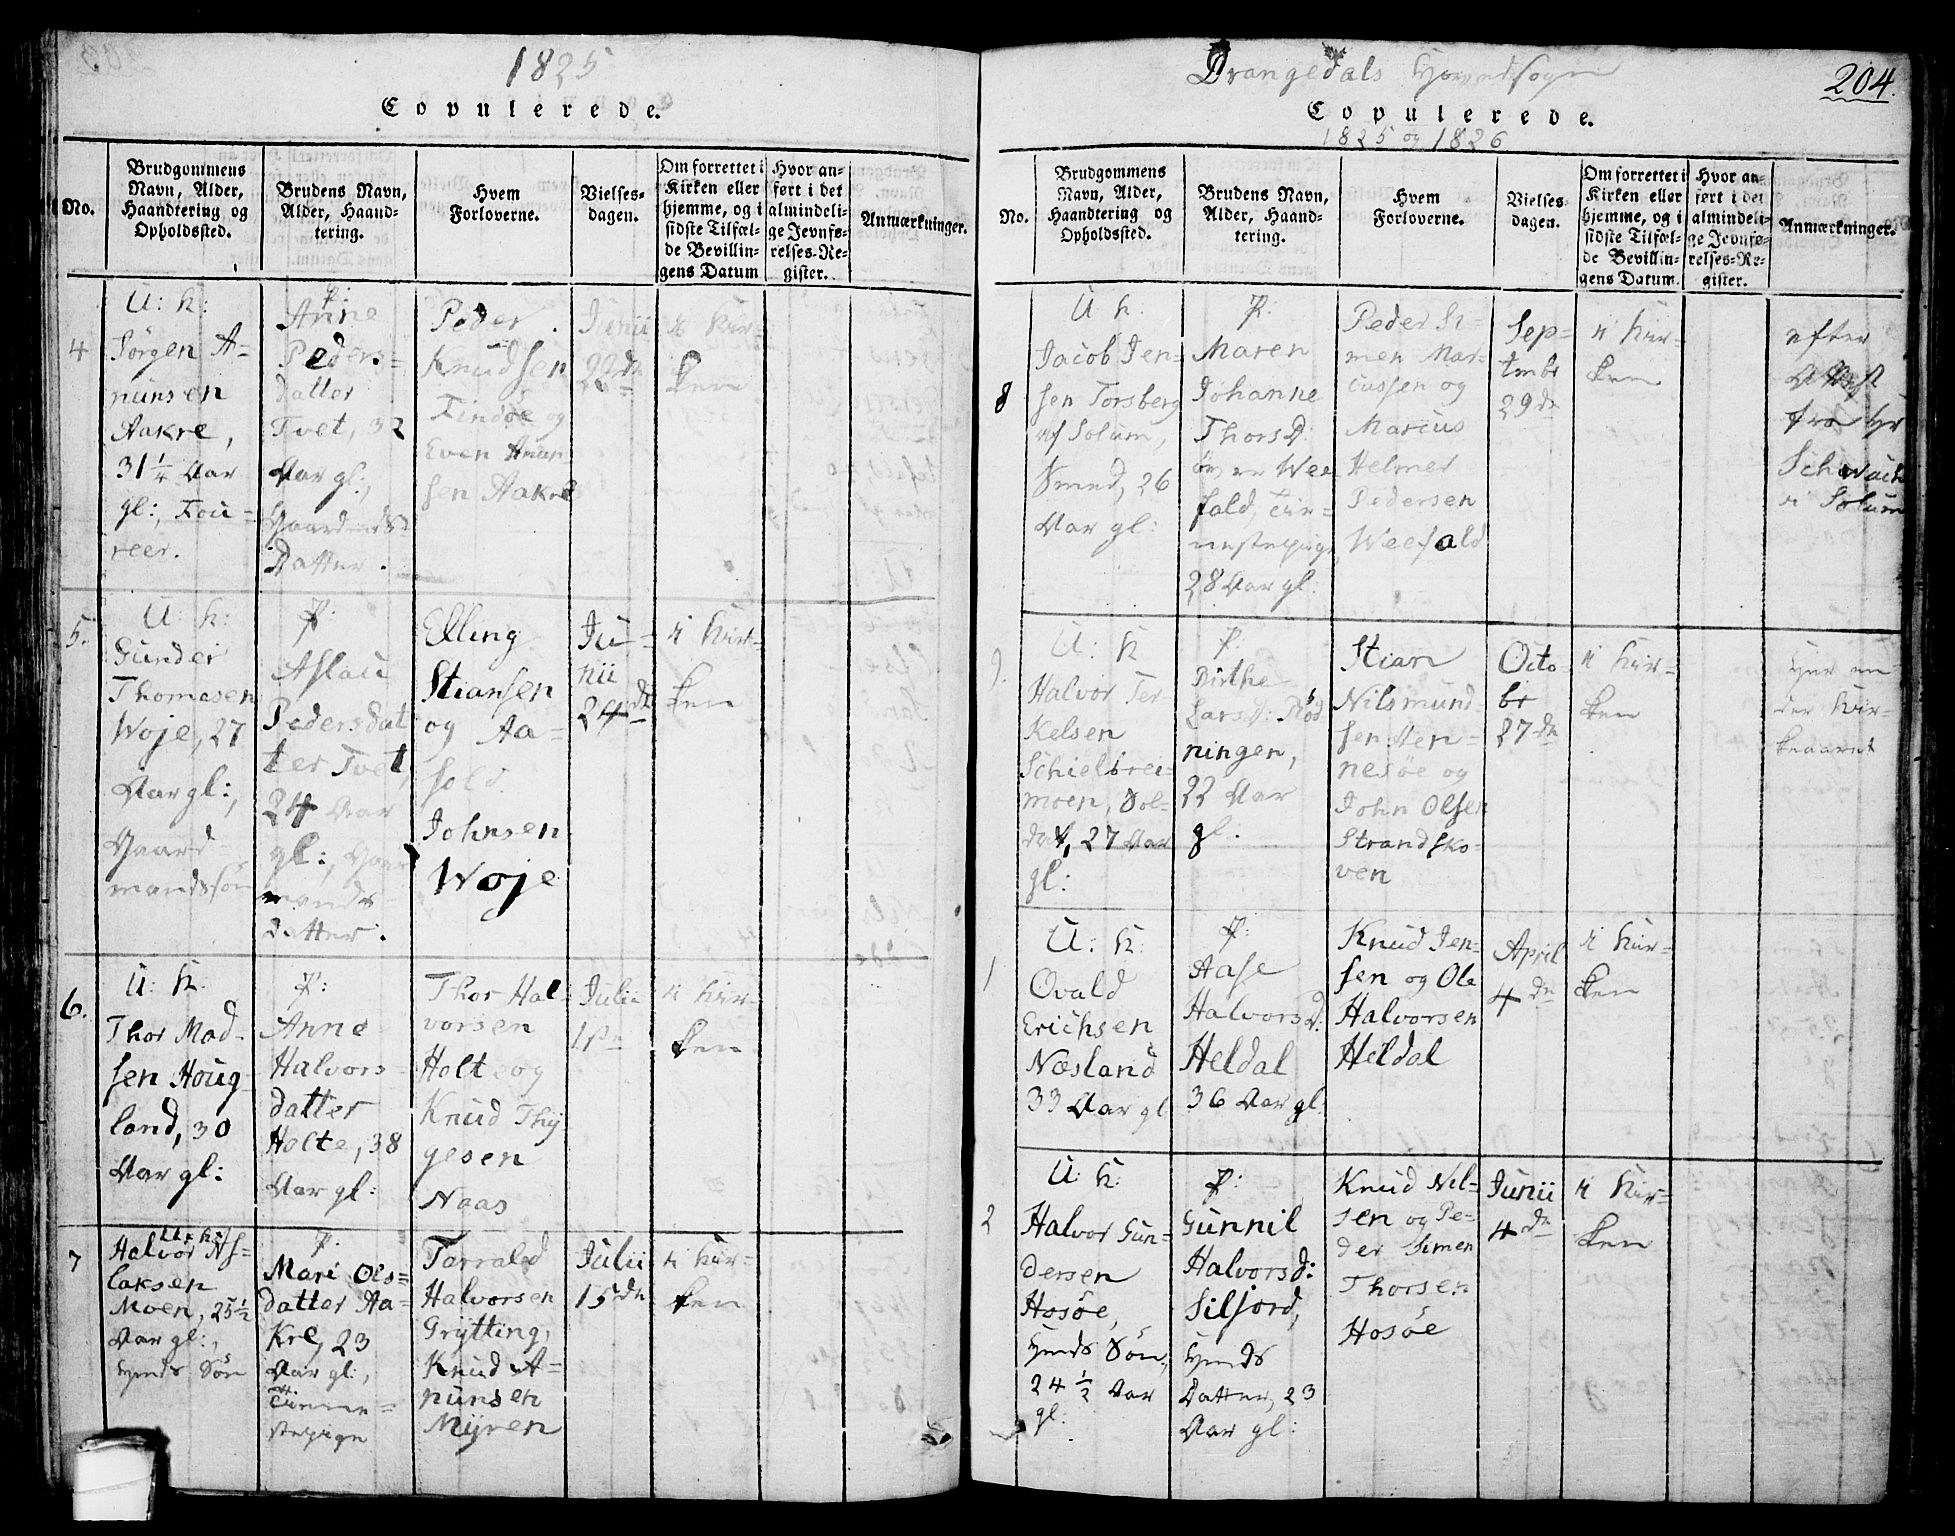 1825
Copulerede.
No.
Brudgommens
Navn, Alder,
Haandtering og
Opholdssted.
Brudens Navn,
Alder, Haand-
tering.
Hvem
Forloverne.
Vielses-
dagen.
Om forrettet i
Kirken eller
hjemme, og i
sidste Tilfæl-
de Bevillin-
gens Datum
Hvor an-
ført i det
almindeli-
ge Jevnfø-
relses-Re-
gister.
Anmærkninger.
4
U: K:
Jörgen A-
nunsen
Aakre,
31 1/4 Aar
gl:, Fou-
reer.
P:
Anne
Peders-
datter
Tvet, 32
Aar gl:,
Gaardmds
Datter.
Peder
Knudsen
Findöe og
Even Anun
sen Aakre
Junii
22de
i Kir-
ken
5.
U: K:
Gunder
Thomasen
Woje, 27
Aar gl:,
Gaard-
mandssön
P:
Aslau
Pedersdat
ter Tvet,
24 Aar
gl:, Gaar
mands-
datter.
Elling
Stiansen
og Aa-
sold
Johnsen
Woje
Ju-
nii
24de
i Kir-
ken
6.
U: K:
Thor Mad-
sen Houg-
land, 30
Aar gl:
P:
Anne
Halvors-
datter
Holte, 38
Aar gl:
Thor Hal-
vorsen
Holte og
Knud Thy
gesen
Naas
Julii
1ste
i Kir-
ken
7
U: K:
Halvor As-
laksen
Moen, 25 1/2
Aar gl:,
Hmds Sön
P:
Mari Ols-
datter Aa-
kre, 23
Aar gl:,
tienne-
stepige
Tarrald
Halvorsen
Grytting,
Knud A-
nunsen
Myren
Julii
15de
i Kir-
ken
Drangedals Hovedsogn
204.
Copulerede.
1825 og 1826
No.
Brudgommens
Navn, Alder,
Haandtering og
Opholdssted.
Brudens Navn,
Alder, Haand-
tering.
Hvem
Forloverne.
Vielses-
dagen.
Om forrettet i
Kirken eller
hjemme, og i
sidste Tilfæl-
de Bevillin-
gens Datum.
Hvor an-
ført i det
almindeli-
ge Jevnfø-
relses-Re-
gister.
Anmærkninger.
8
U: K.
Jacob Jen-
sen Torsberg
af Solum,
Smed, 26
Aar gl:
P.
Maren
Johanne
Thorsd:
Wee
fald, tie-
nestepige
28 Aar gl:
Peder Si-
men Mar-
cussen og
Marcus
Helmer
Pedersen
Weefald
Sep-
tmbr
29de
i Kir-
ken
efter
Attest
fra Hr
Schwach
i Solum
9.
U: K
Halvor Ter
Kelsen
Schielbrei-
moen, Sol-
dat, 27 Aar
gl:
P:
Birthe
Larsd: Röd
ningen,
22 Aar
gl.
Stian
Nilsmund-
sen Hen-
nesöe og
John Olsen
Strandsko-
ven
Octo
br
27de
i Kir-
ken
1
U: K:
Ovald
Erichsen
Næsland
33 Aar gl
P:
Aase
Halvorsd:
Heldal
36 Aar gl:
Knud Jen-
sen og Ole
Halvorsen
Heldal
April
4de
i Kir-
ken
2
U: K:
Halvor Gun-
dersen
Hosöe,
Hmds Sön,
24 1/2 Aar
gl:
P:
Gunnil
Halvorsd:
Siljord,
Hmds
Datter, 23
Aar gl:
Knud Nil-
sen og Pe-
der Simen
Thorsen
Hosöe
Junii
4de
i Kir-
ken